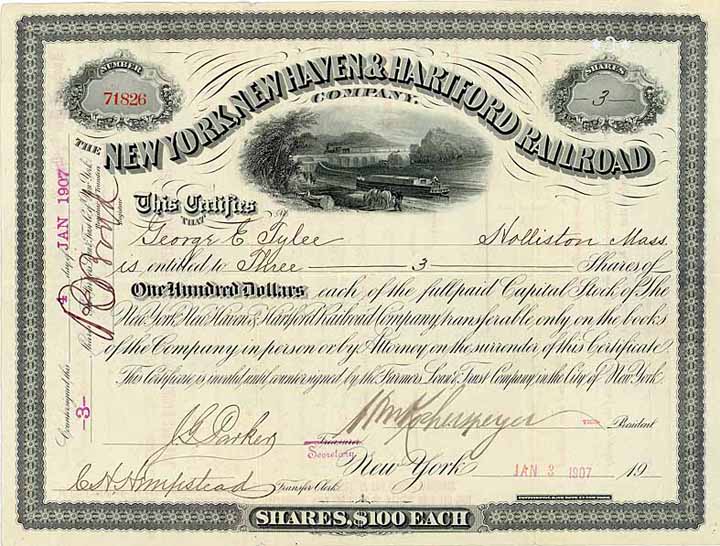 NUMBER
71826
SHARES
3
THE NEW YORK, NEW HAVEN & HARTFORD RAILROAD
COMPANY.
This Certifies
THAT
George E Tylee Holliston Mass.
is entitled to Three 3 Shares of
One Hundred Dollars each of the fullpaid Capital Stock of The
New York, New Haven & Hartford Railroad Company, transferable only on the books
of the Company in person or by Attorney on the surrender of this Certificate.
This Certificate is invalid until countersigned by the Farmers Loan & Trust Company, in the City of New York.
President
J G Parker
Treasurer
Secretary
New York JAN 3 1907 19
C. H. Hempstead Transfer Clerk
SHARES, $100 EACH
Countersigned this 4 day of JAN 1907
-3-